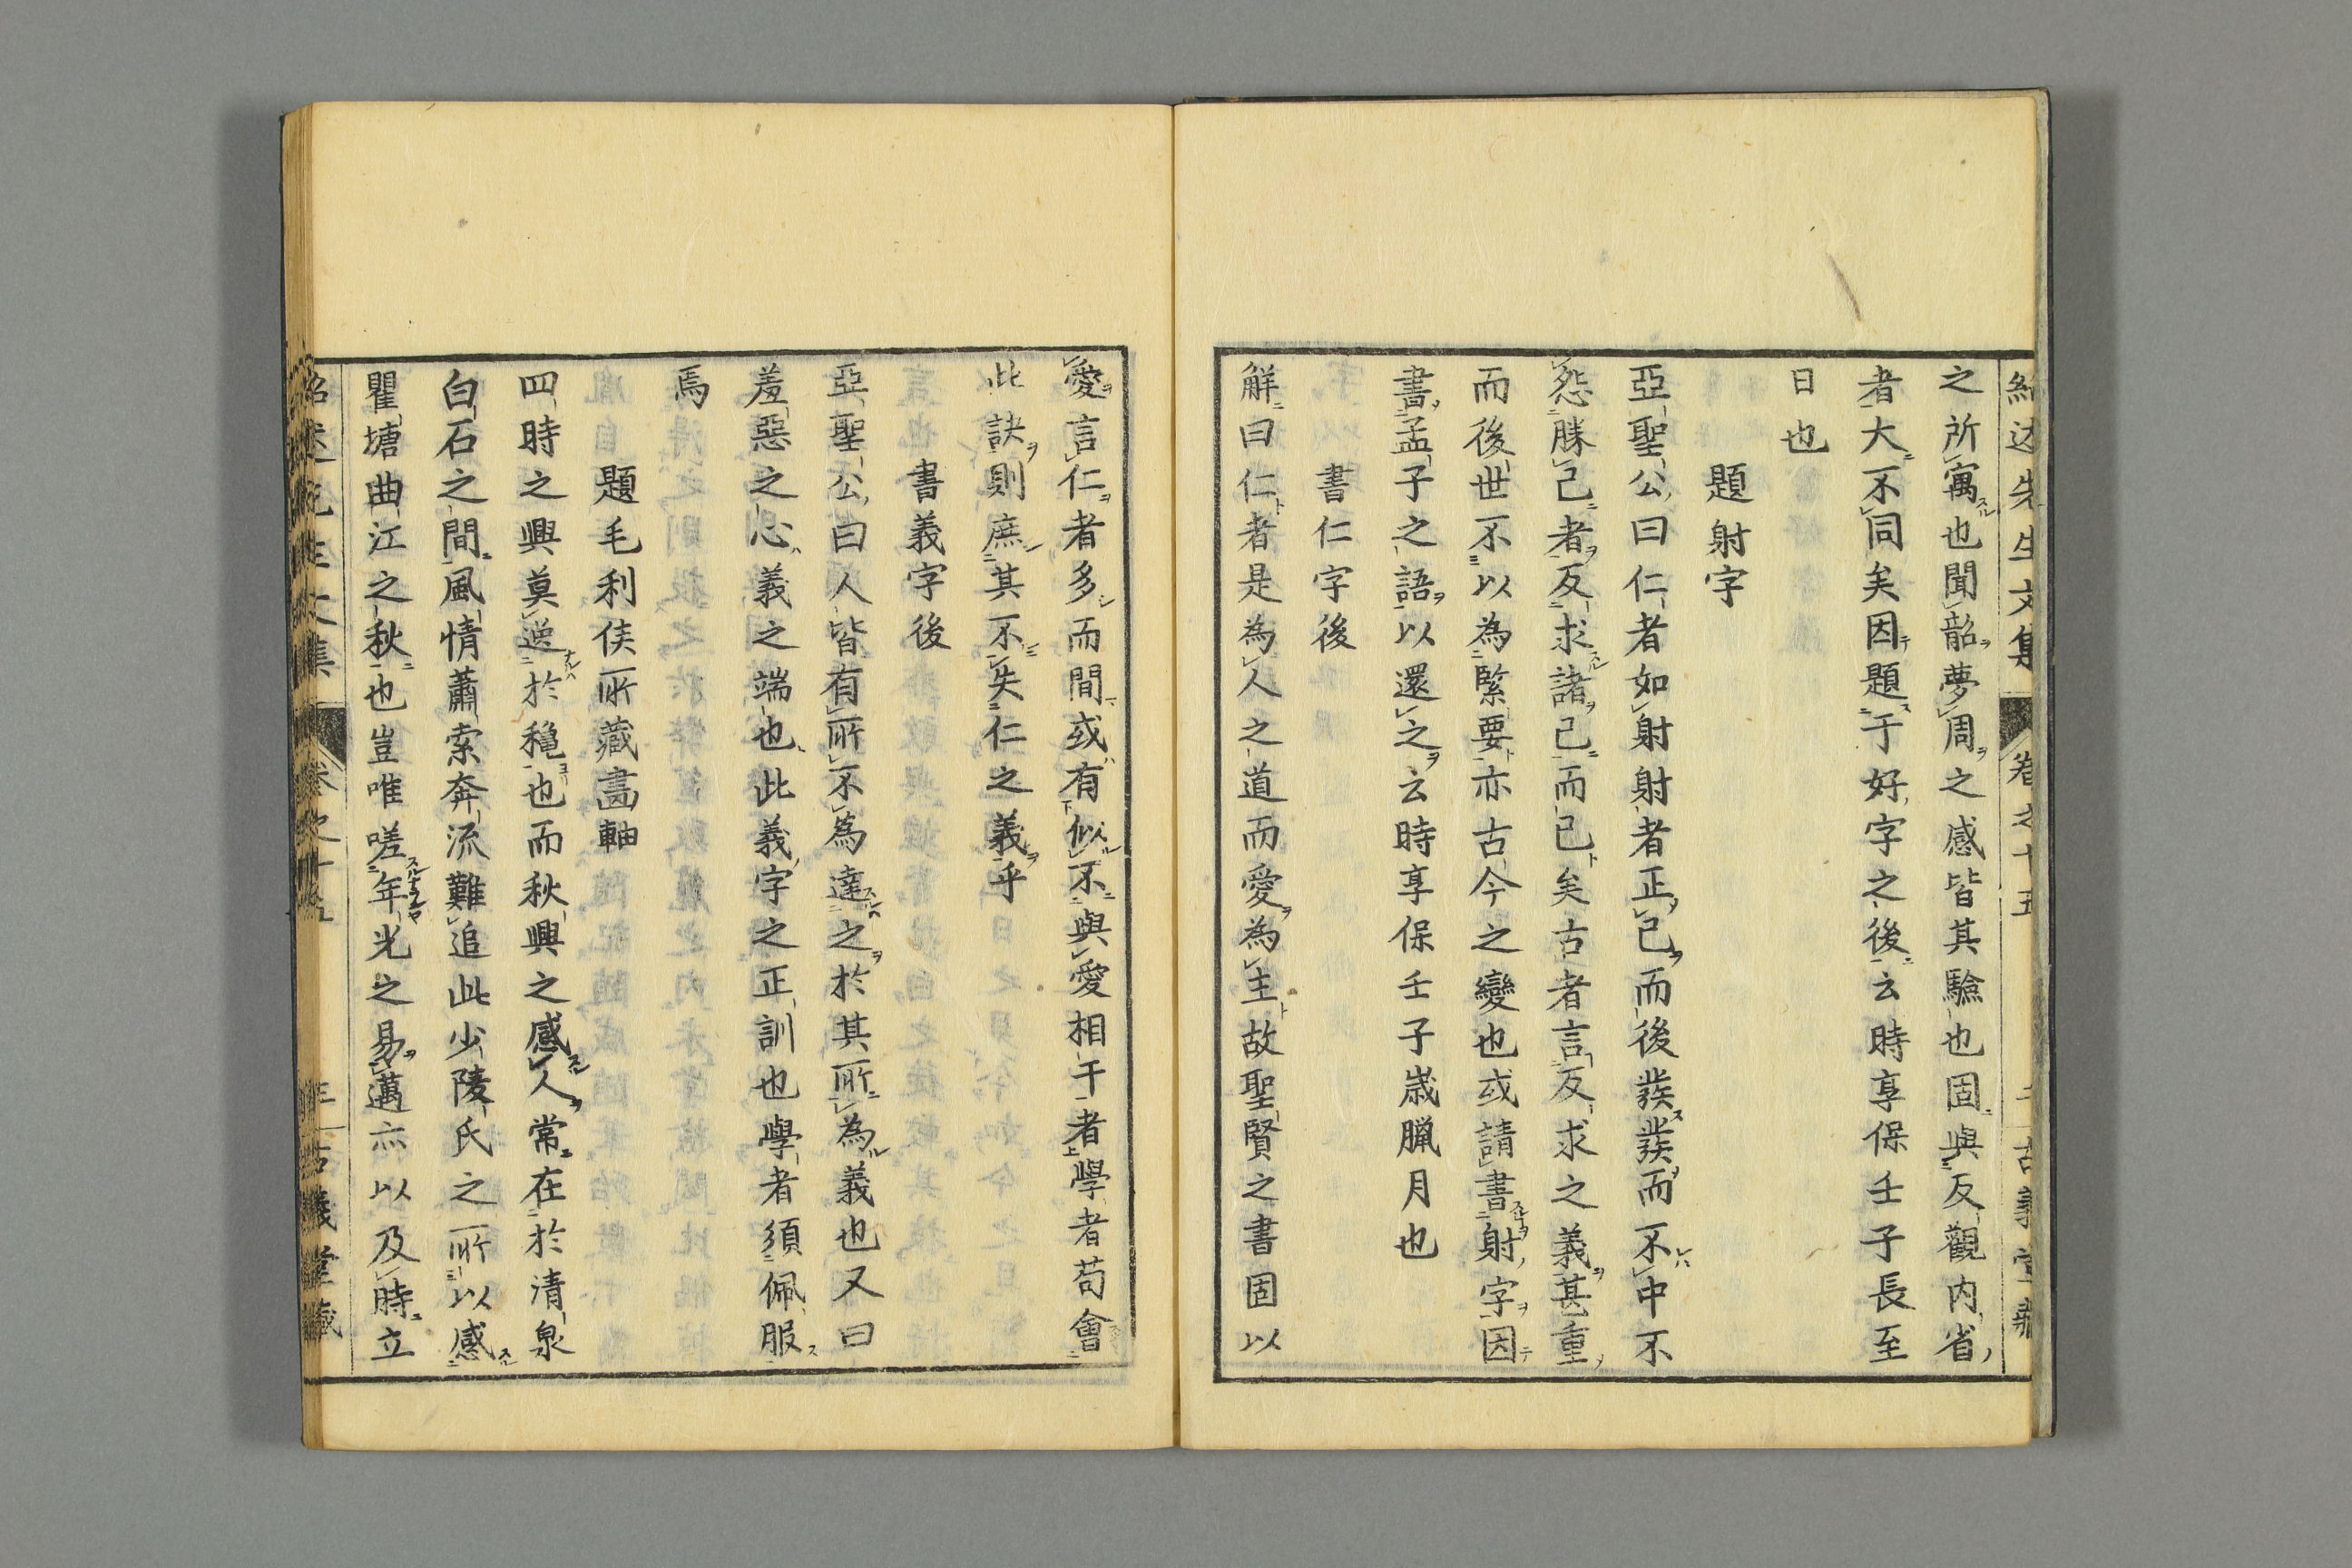 紹述先生文集 卷之十五 古義堂藏
之所寓也聞韶夢周之感皆其驗也固與反觀内省
者大不同矣因題于好字之後云時享保壬子長至
日也
題射字
亞聖公曰仁者如射射者正己而後發發而不中不
怨勝己者反求諸己而已矣古者言反求之義甚重
而後世不以為緊要亦古今之變也或請書射字因
書孟子之語以還之云時享保壬子嵗臘月也
書仁字後
觧曰仁者是為人之道而愛為主故聖賢之書固以
愛言仁者多而間或有似不與愛相干者學者苟會
此訣則庶其不失仁之義乎
書義字後
亞聖公曰人皆有所不為達之於其所為義也又曰
羞惡之心義之端也此義字之正訓也學者須佩服
焉
題毛利侯所藏畵軸
四時之興莫逆於穐也而秋興之感人常在於清泉
白石之間風情蕭索奔流難追此少陵氏之所以感
瞿塘曲江之秋也豈唯嗟年光之易邁亦以及時立
紹述先生文集 卷之十五 古義堂藏